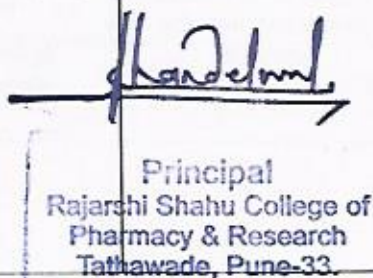 Principal
Rajarshi Shahu College of
Pharmacy & Research
Tathawade, Pune-33.